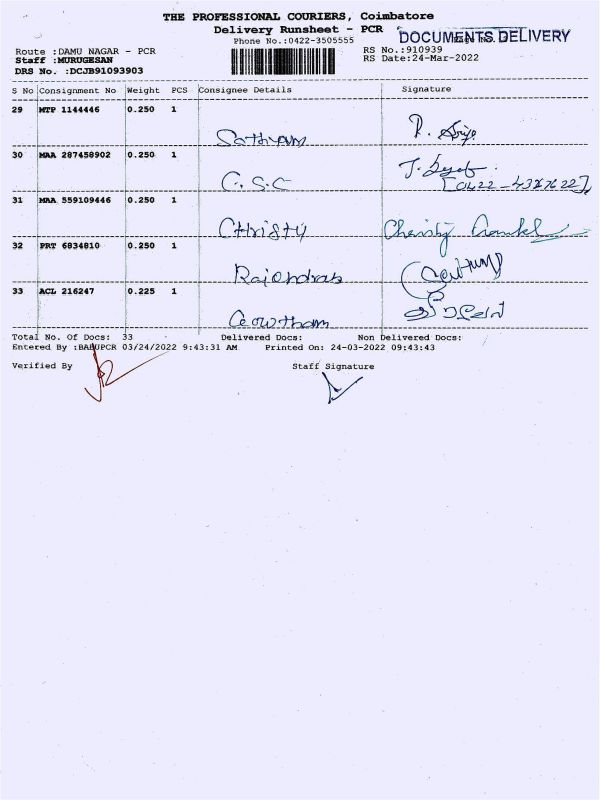 THE PROFESSIONAL COURIERS, Coimbatore
Delivery Runsheet - PCR
Phone No.:0422-3505555
DOCUMENTS DELIVERY
Route :DAMU NAGAR - PCR
RS No.:910939
Staff :MURUGESAN
RS Date:24-Mar-2022
DRS No. :DCJB91093903
S No Consignment No Weight PCS Consignee Details Signature
29 MTP 1144446 0.250 1
Sathyam
30 MAA 287458902 0.250 1
C.S.C
31 MAA 559109446 0.250 1
Christy Christy
32 PRT 6834810 0.250 1
Rajendran
33 ACL 216247 0.225 1
Gowtham
Total No. Of Docs: 33 Delivered Docs: Non Delivered Docs:
Entered By :BABUPCR 03/24/2022 9:43:31 AM Printed On: 24-03-2022 09:43:43
Verified By Staff Signature